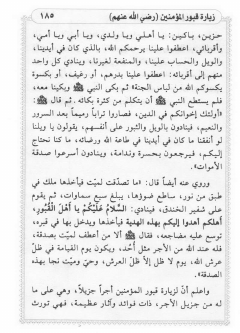 زيارة قبور المؤمنين (رضي الله عنهم) ١٨٥
حزين، باكين: يا أهلي ويا ولدي، ويا أبي ويا أمي،
وأقربائي، اعطفوا علينا يرحمكم الله، بالذي كان في أيدينا،
والويل والحساب علينا، والمنفعة لغيرنا، وينادي كل واحد
منهم إلى أقربائه: اعطفوا علينا بدرهم، أو رغيف، أو بكسوة
يكسوكم الله من لباس الجنة! ثم بكى النبي ﷺ وبكينا معه،
فلم يستطع النبي ﷺ أن يتكلم من كثرة بكائه. ثم قال ﷺ:
أولئك إخوانكم في الدين، فصاروا تراباً رميماً بعد السرور
والنعيم، فينادون بالويل والثبور على أنفسهم، يقولون يا ويلنا
لو أنفقنا ما كان في أيدينا في طاعة الله ورضائه، ما كنا نحتاج
إليكم، فيرجعون بحسرة وندامة، وينادون أسرعوا صدقة
الأموات».
وروي عنه أيضاً قال: «ما تصدقت لميت فيأخذها ملك في
طبق من نور، ساطع ضوؤها، يبلغ سبع سماوات، ثم يقوم على
شفير الخندق، فينادي: السَّلامُ عَلَيْكُمْ يا أَهْلَ الْقُبُورِ،
أهلكم أهدوا إليكم بهذه الهدية فيأخذها ويدخل بها في قبره،
توسع عليه مضاجعه، فقال ﷺ ألا من أعطف لميت بصدقة،
فله عند الله من الأجر مثل أحد، ويكون يوم القيامة في ظل
عرش الله، يوم لا ظل إلا ظل العرش، وحي وميت نجا بهذه
الصدقة».
واعلم أن لزيارة قبور المؤمنين أجراً جزيلاً، وهي على ما
له من جزيل الأجر، ذات فوائد وآثار عظيمة، فهي تورث